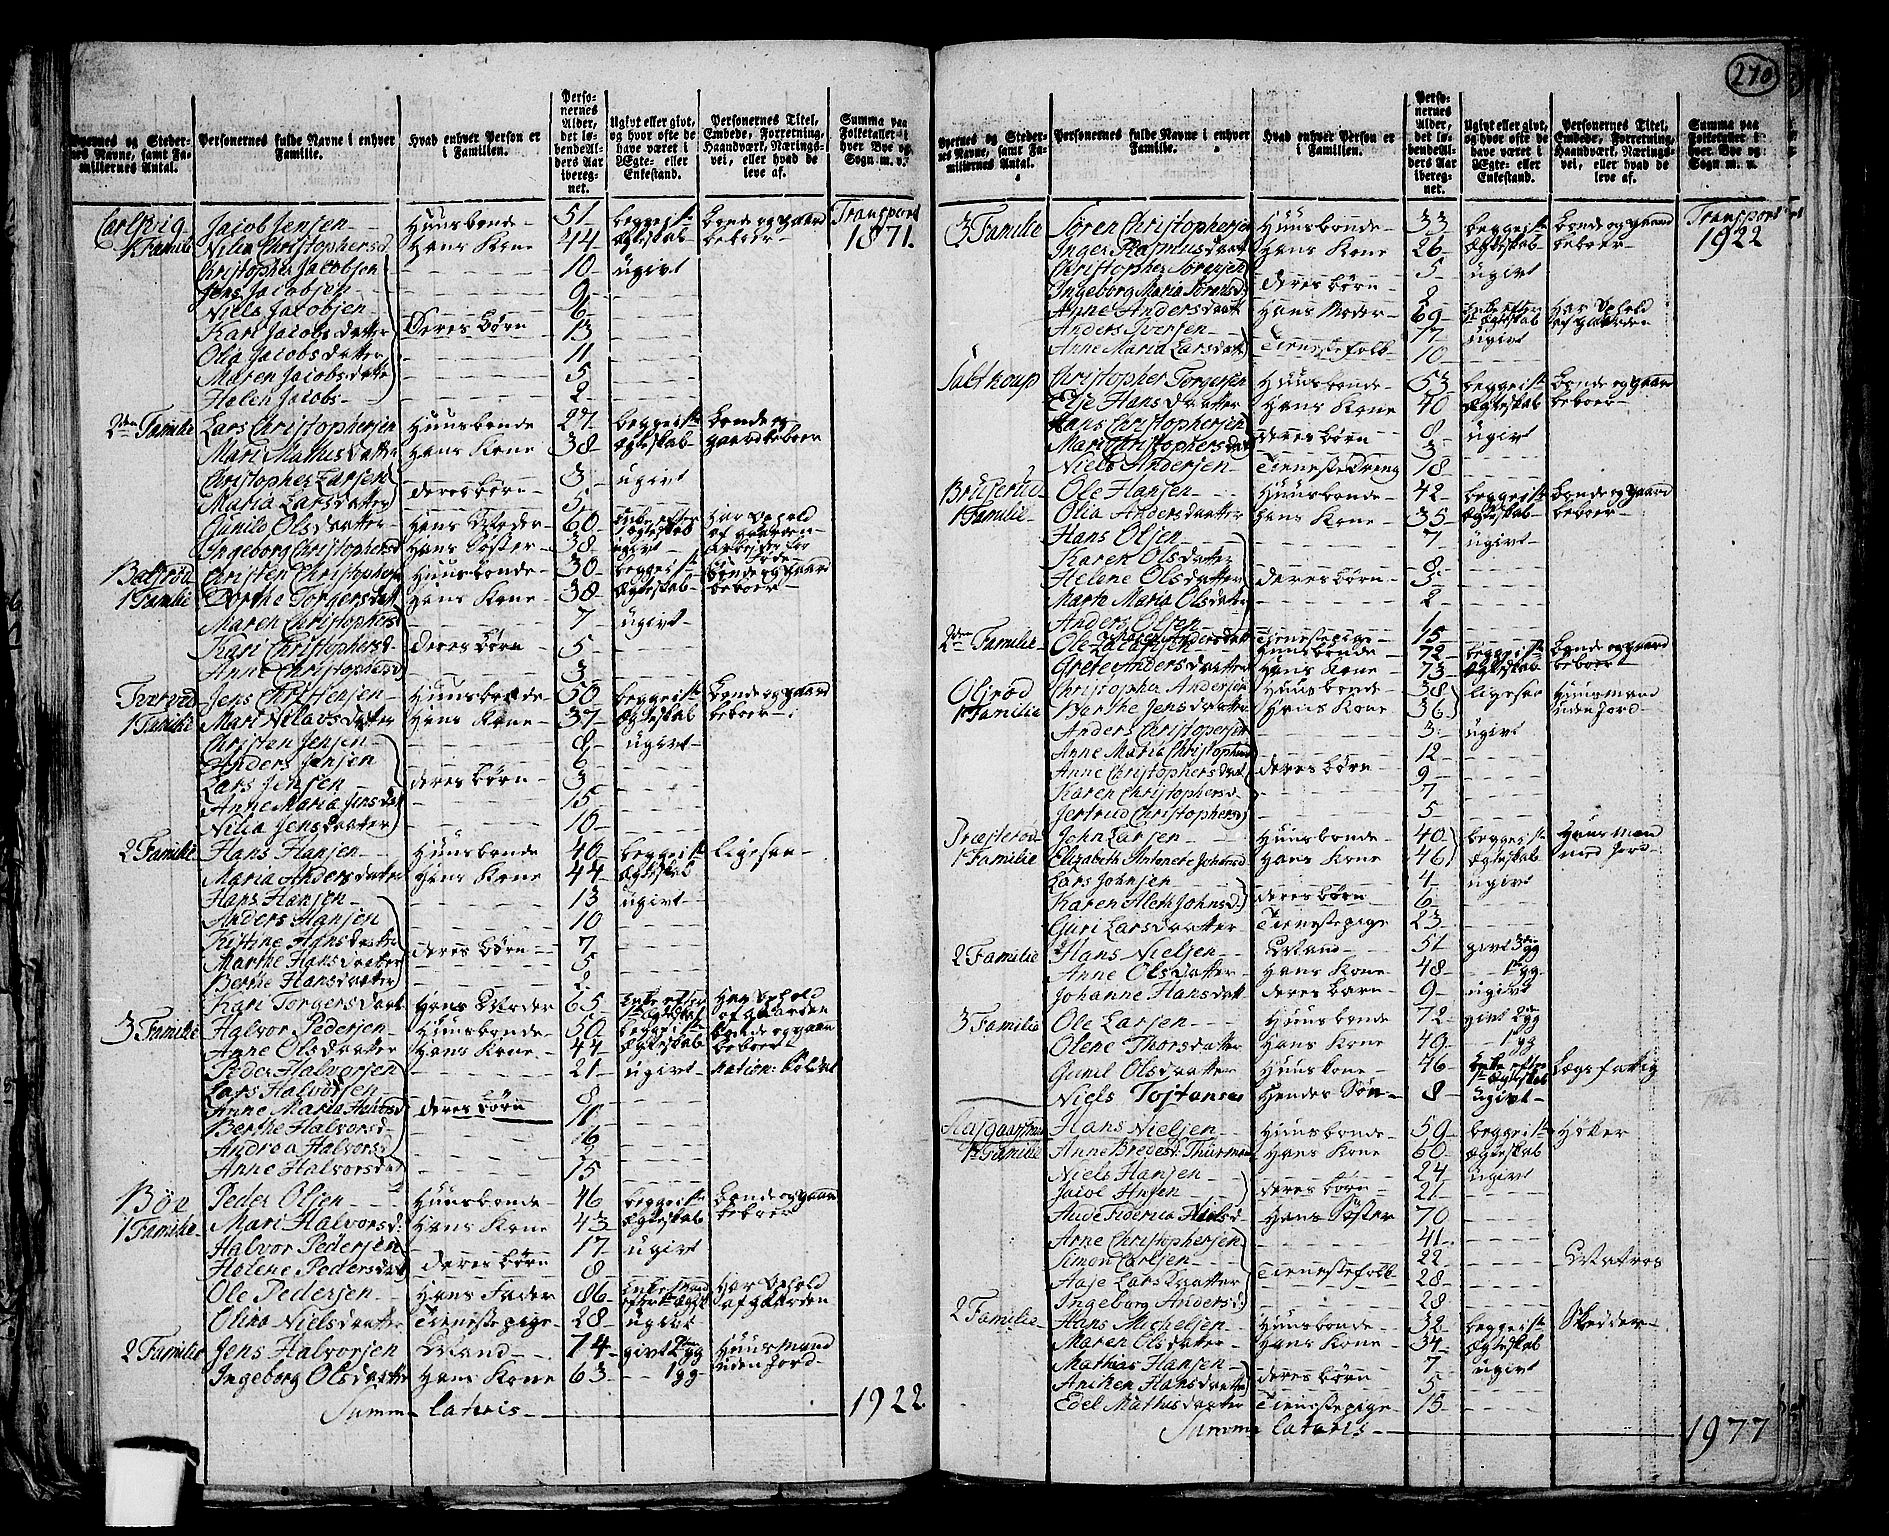 270
Byernes og Stedernes Navne, samt Familiernes Antal.
Personernes fulde Navne i enhver Familie.
Hvad enhver Person er i Familien.
Personernes Alder, det løbende Alders Aar iberegnet.
Ugivt eller givt, og hvor ofte de have været i Ægte- eller Enkestand.
Personernes Titel, Embede, Forretning, Haandværk, Næringsvei, eller hvad de leve af.
Summa paa Folketallet i hver Bye og Sogn m. v.
Carlsvig Jacob Jensen Huusbonde 51 begge i 1ste bonde og gaard Transport
1 Familie Nilia Christophersd. Hans Kone 44 Ægteskab beboer 1871
Christopher Jacobsen 10 ugivt
Jens Jacobsen 9
Niels Jacobsen 6
Kari Jacobsdatter Deres børn 13
Olia Jacobsdatter 11
Maren Jacobsdatter 5
Helen Jacobs 2
2den Familie Lars Christophersen Huusbonde 27 begge i 1ste bonde og
Mari Mathisdatter Hans Kone 38 Ægteskab gaardbeboer
Christopher Larsen 3 ugivt
Maria Larsdatter deres børn 5
Gunild Olsdaatter Hans Moder 60 Enke efter 1 Ægteskab Har Ophold af gaarden
Ingeborg Christophersd Hans Søster 38 ugivt arbejder for føde
Christen Christophers Huusbonde 30 begge i 1ste bonde og gaard
1 Familie Dorthe Torgersdatt Hans Kone 38 Ægteskab beboer
Maren Christophersd 7 ugivt
Kari Christophersd. deres børn 5
Anne Christophersd 3
Tverød Jens Christensen Huusbonde 50 begge i 1ste bonde og gaard
1 Familie Mari Nilavsdatter Hans Kone 37 Ægteskab beboer
Christen Jensen 8 ugivt
Anders Jensen 6
Lars Jensen deres børn 3
Anne Maria Jensdat 15
Nilia Jensdaatter 10
2 Familie Hans Hansen Huusbonde 40 begge i 1ste ligesaa
Maria Andersdatter Hans Kone 44 Ægteskab
Hans Hansen 13 ugivt
Anders Hansen 10
Kistine Hansdatter deres børn 7
Marthe Hansdatter 5
Berthe Hansdatter 2
Kari Torgersdaatt Hans Moder 65 Enke efter 1ste Ægteskab Har Ophold af gaarden
3 Familie Halvor Pedersen Huusbonde 50 begge i 1ste bonde og gaard
Anne Olsdaatter Hans Kone 44 Ægteskab beboer
Peder Halvorsen 21 ugivt Nation: Soldat
Lars Halvorsen 8
Anne Maria Halvorsd deres børn 11
Berthe Halvorsd. 16
Andrea Halvorsd 2
Anne Halvorsdat 15
Bøe Peder Olsen Huusbonde 46 begge i 1ste bonde og gaard
1 Familie Mari Halvorsd: Hans Kone 43 Ægteskab beboer
Halvor Pedersen 17 ugivt
Helene Pedersdat deres børn 8
Ole Pedersen Hans Fader 86 Enkemand efter 1ste Ægtesk Har Ophold af gaarden
Olina Nielsdaatter Tienestepige 28 ugivt
2 Familie Jens Halvorsen Mand 74 givt 2den gg Huusmand
Ingeborg Olsdaatter Hans Kone 63 1 gg uden Jord
Summa lateris 1922
Byernes og Stedernes Navne, samt Familiernes Antal.
Personernes fulde Navne i enhver Familie.
Hvad enhver Person er i Familien.
Personernes Alder, det løbende Alders Aar iberegnet.
Ugivt eller givt, og hvor ofte de have været i Ægte- eller Enkestand.
Personernes Titel, Embede, Forretning, Haandværk, Næringsvei, eller hvad de leve af.
Summa paa Folketallet i hver Bye og Sogn m. v.
3 Familie Søren Christophersen Huusbonde 33 begge i 1ste bonde og gaard Transport
Inger Rasmusdaatt Hans Kone 26 Ægteskab beboer 1922
Christopher Sørensen 5 ugivt
Ingeborg Maria Sørensd. deres børn 2
Anne Andersdaatt Hans Moder 69 Enke efter 1ste Ægteskab Har Ophold af gaarden
Anders Iversen 17 ugivt
Anne Maria Larsdatt Tienestefolk 10
Christopher Torgersen Huusbonde 53 begge i 1ste bonde og gaard
Else Hansdaatter Hans Kone 40 Ægteskab beboer
Hans Christophersen 8 ugivt
Mari Christophersdatt deres børn 3
Niels Andersen Tienestedreng 18
Brüserud Ole Hansen Huusbonde 42 begge i 1ste bonde og gaard
1 Familie Olia Andersdaatter Hans Kone 35 Ægteskab beboer
Hans Olsen 7 ugivt
Karen Olsdatter 8
Helene Olsdatter deres børn 3
Marte Maria Olsdatter 2
Anders Olsen 1
Andersdatt Tienestepige 15
2den Familie Ole Zacarisen Huusbonde 72 begge i 1ste bonde og gaard
Grete Andersdaatter Hans Kone 73 Ægteskab beboer
Olsrød Christopher Andersen Huusbonde 38 ligesaa Huusmand
1 Familie Berthe Jensdaatter Hans Kone 36 uden Jord
Anders Christophersen 3 ugivt
Anne Maria Christophersd 12
Anne Christophersdat deres børn 9
Karen Christophersd. 7
Jertrud Christophersd 5
Præsterød John Larsen Huusbonde 40 begge i 1ste Huusmand
1 Familie Elisabeth Antonete Johansd Hans Kone 46 Ægteskab med Jord
Lars Johnsen 4 ugivt
Karen Aleth Johnsd. deres børn 6
Guri Larsdaatter Tienestepige 23
2 Familie Hans Nielsen Mand 51 givt 3die gg
Anne Olsdatter Hans Kone 48 1ste gg
Johanne Hansdatt deres barn 9 ugivt
3 Familie Ole Larsen Huusbonde 72 givt 2den gg
Olene Thorsdaatter Hans Kone 49 1 gg
Gunil Olsdaatter Huuskone 46 Enke efter 1ste Ægteskab Lægsfattig
Niels Tostensen Hendes Søn 8 ugivt
Hans Nielsen Huusbonde 59 begge i 1ste Høker
1 Familie Anne Bredesd: Thurman Hans Kone 60 Ægteskab
Niels Hansen 24 ugivt
deres børn 21
Aude Niels d. Hans Søster 70
Arne Christophersen 41
Simon Carlsen 22 Matros
Aase Larsdaatter Tienestefolk 28
Ingeborg Andersd: 28
2 Familie Hans Michelsen Huusbonde 32 begge i 1ste Skredder
Maren Olsdatter Hans Kone 34 Ægteskab
Mathias Hansen 7 ugivt
Aniken Hansdaatter deres børn 5
Edel Mathisdaatter Tienestepige 15
Summa lateris 1977